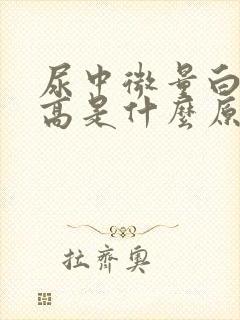 尿中微量白
高是什麼原
拉齊奧